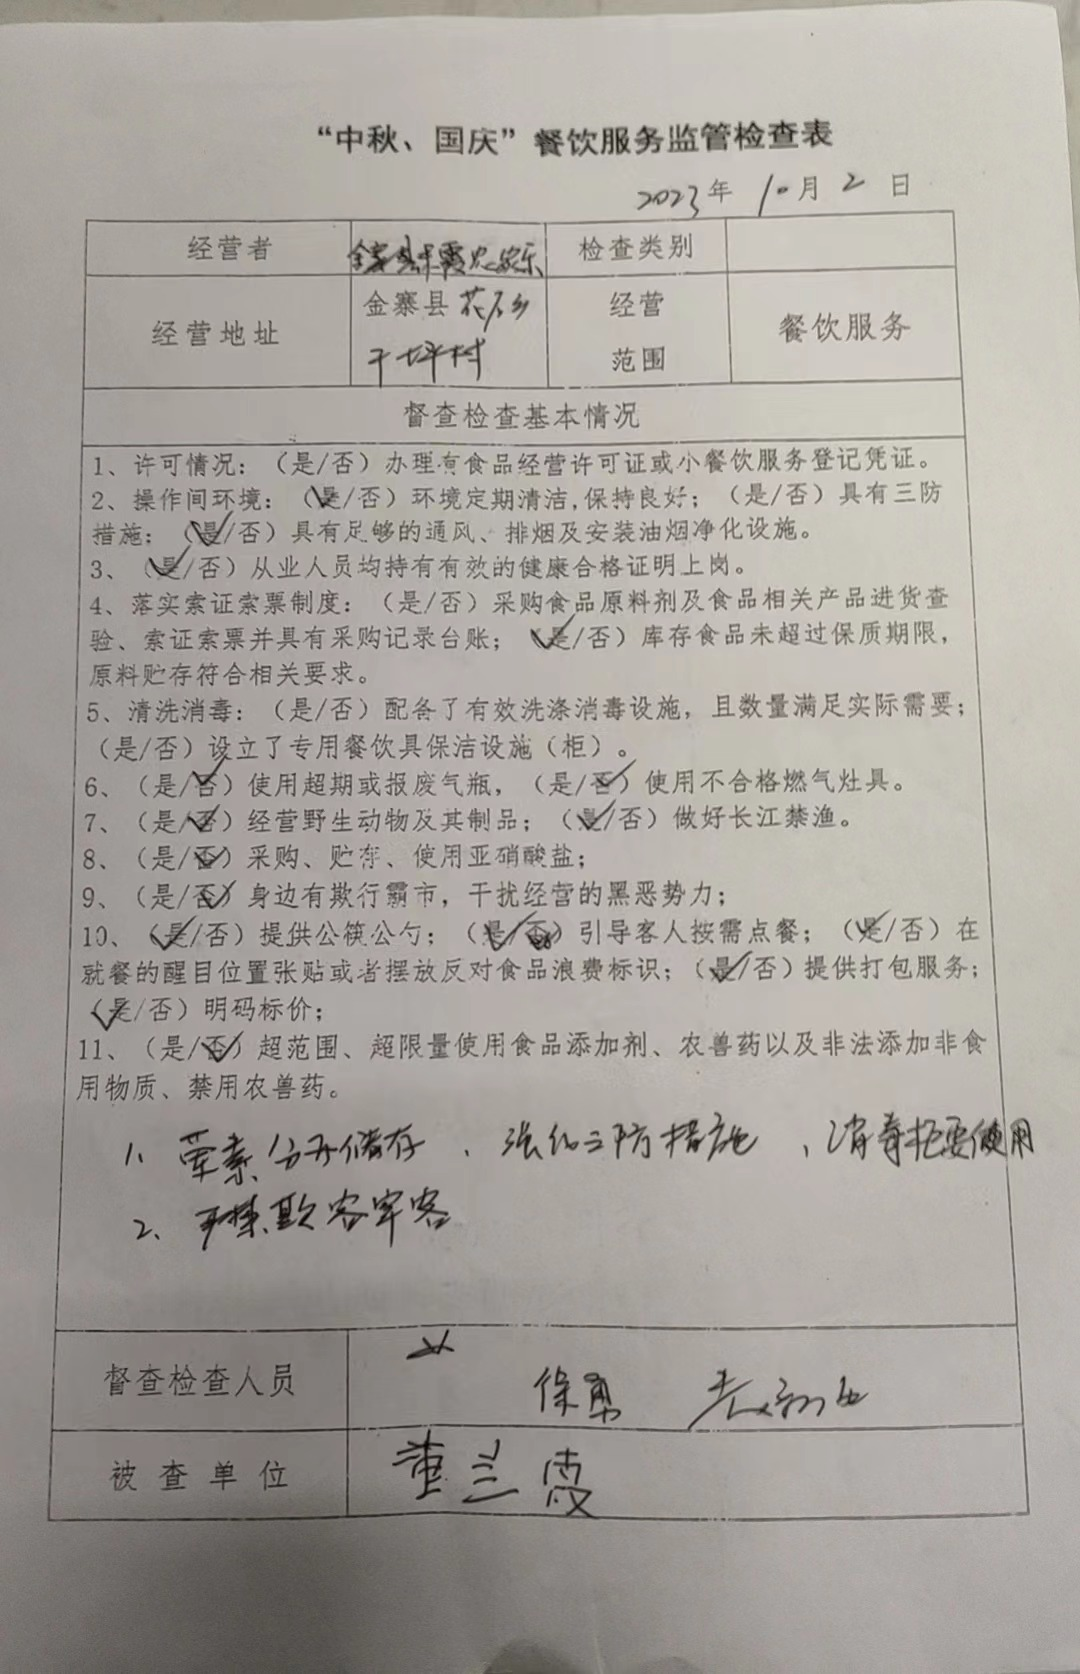 “中秋、国庆”餐饮服务监管检查表
2023年 10月 2 日
经营者 金寨县 霞农家乐 检查类别
经营地址 金寨县花石乡 经营 餐饮服务
干坪村 范围
督查检查基本情况
1、许可情况：（是/否）办理有食品经营许可证或小餐饮服务登记凭证。
2、操作间环境：（是/否）环境定期清洁,保持良好；（是/否）具有三防
措施；（是/否）具有足够的通风、排烟及安装油烟净化设施。
3、（是/否）从业人员均持有有效的健康合格证明上岗。
4、落实索证索票制度：（是/否）采购食品原料剂及食品相关产品进货查
验、索证索票并具有采购记录台账；（是/否）库存食品未超过保质期限，
原料贮存符合相关要求。
5、清洗消毒：（是/否）配备了有效洗涤消毒设施，且数量满足实际需要；
（是/否）设立了专用餐饮具保洁设施（柜）。
6、（是/否）使用超期或报废气瓶，（是/否）使用不合格燃气灶具。
7、（是/否）经营野生动物及其制品；（是/否）做好长江禁渔。
8、（是/否）采购、贮存、使用亚硝酸盐；
9、（是/否）身边有欺行霸市，干扰经营的黑恶势力；
10、（是/否）提供公筷公勺；（是/否）引导客人按需点餐；（是/否）在
就餐的醒目位置张贴或者摆放反对食品浪费标识；（是/否）提供打包服务；
（是/否）明码标价；
11、（是/否）超范围、超限量使用食品添加剂、农兽药以及非法添加非食
用物质、禁用农兽药。
1、荤素分开储存、强化三防措施、消毒柜要使用
2、严禁欺客宰客
督查检查人员 徐勇
被查单位 董兰霞